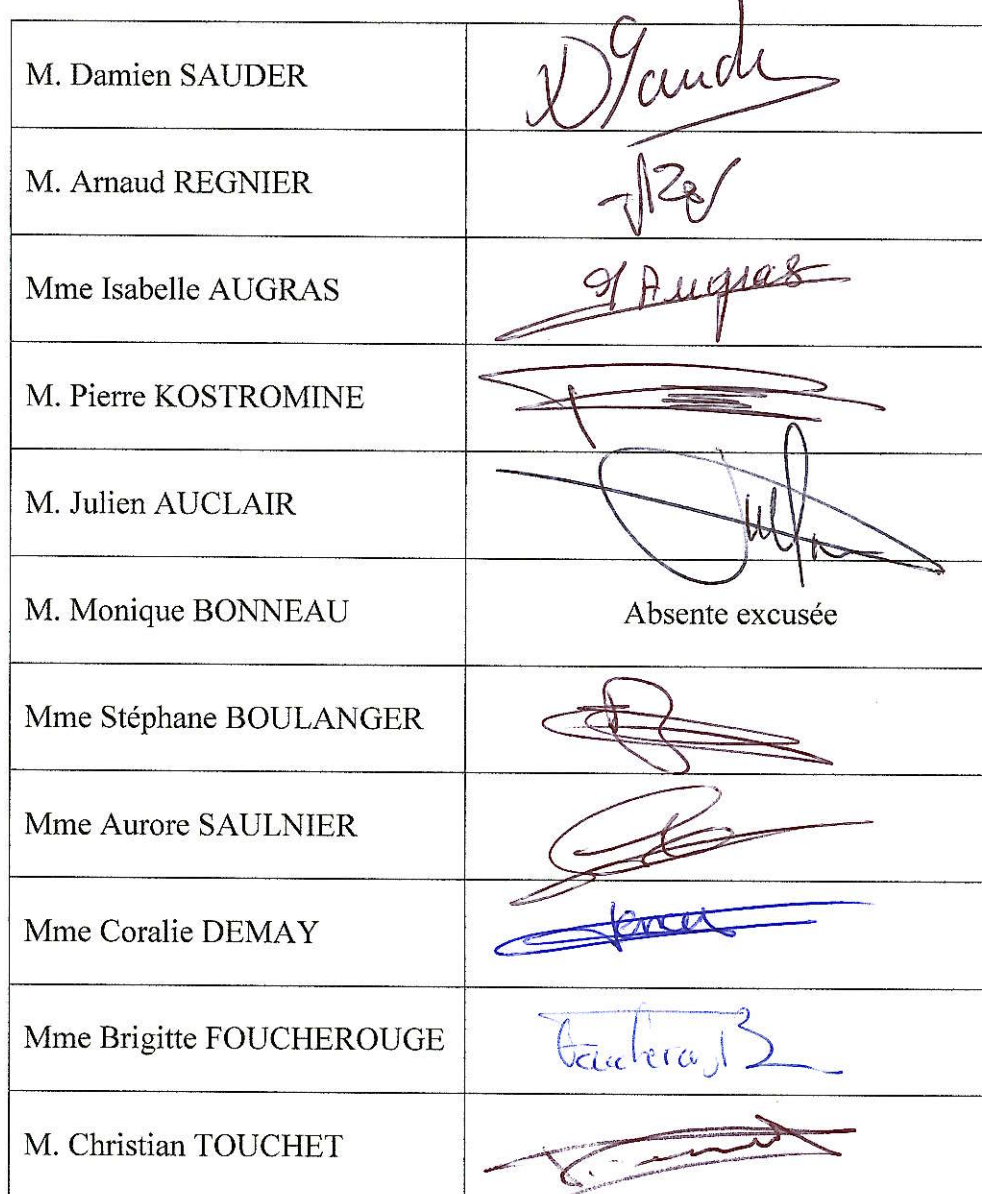 M. Damien SAUDER
M. Arnaud REGNIER
Mme Isabelle AUGRAS
I Augras
M. Pierre KOSTROMINE
M. Julien AUCLAIR
M. Monique BONNEAU
Absente excusée
Mme Stéphane BOULANGER
Mme Aurore SAULNIER
Mme Coralie DEMAY
Mme Brigitte FOUCHEROUGE
M. Christian TOUCHET